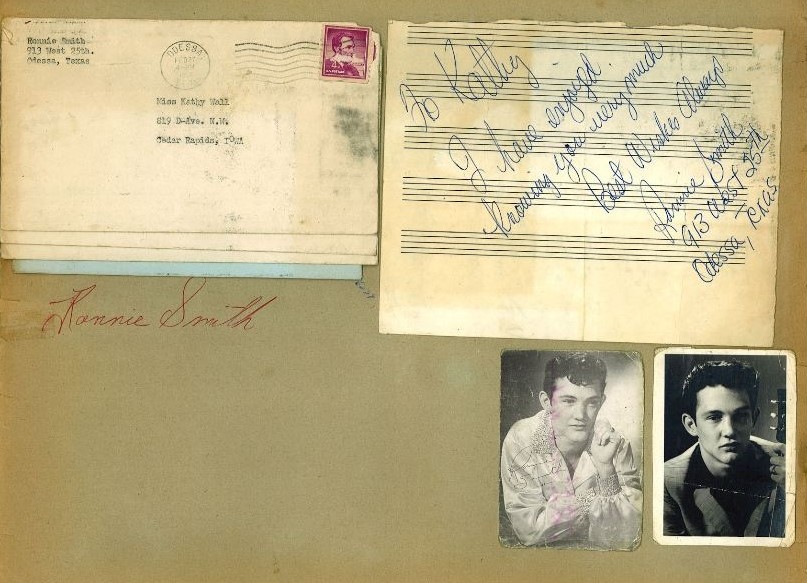 Ronnie Smith
913 West 25th.
Odessa, Texas
ODESSA
Miss Kathy Wall
819 D-Ave. N.W.
Cedar Rapids, IOWA
To Kathy
I have enjoyed
knowing you very much
Best Wishes Always
Ronnie Smith
913 West 25th
Odessa, Texas
Ronnie Smith